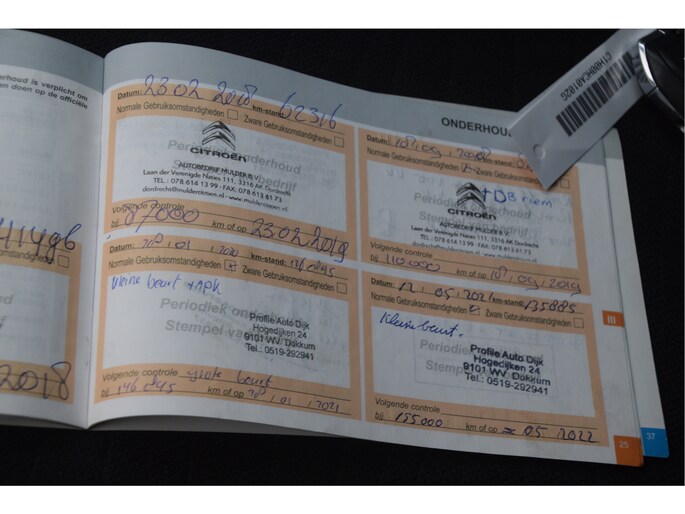 rhoud is verplicht om
en doen op de officiële
41496
2018
Datum: 23 02 2018 km-stand: 62316
Normale Gebruiksomstandigheden Zware Gebruiksomstandigheden
Periodiek onderhoud
Stempel bedrijf
CITROËN
AUTOBEDRIJF MULDER B.V.
Laan der Verenigde Naties 111, 3316 AK Dordrecht
TEL.: 078 614 13 99 - FAX: 078 613 81 73
dordrecht@muldercitroen.nl - www.muldercitroen.nl
Volgende controle
bij 87000 km of op 23 02 2019
Datum: 20 , 01 , 2020 km-stand:
Normale Gebruiksomstandigheden Zware Gebruiksomstandigheden
kleine beurt + apk
Periodiek
Stempel
Profile Auto Dijk
Hogedijken 24
9101 WV Dokkum
Tel.: 0519-292941
Volgende controle grote beurt
bij km of op 20 , 01 , 2021
ONDERHOU
Datum: km-stand:
Normale Gebruiksomstandigheden Zware Gebruiksomstandigheden
+ DB riem
Periodiek onderhoud
Stempel bedrijf
CITROËN
AUTOBEDRIJF MULDER B.V.
Laan der Verenigde Naties 111, 3316 AK Dordrecht
TEL.: 078 614 13 99 - FAX: 078 613 81 73
Volgende controle
bij 110.000 km of op 18 , 09 , 2019
Datum: 12 . 05 . 2021 km-stand: 135885
Normale Gebruiksomstandigheden Zware Gebruiksomstandigheden
Kleine beurt.
Periodiek
Stempel
Profile Auto Dijk
Hogedijken 24
9101 WV Dokkum
Tel.: 0519-292941
Volgende controle
bij 155000 km of op 05 . 2022
III
25
37
C1H00HCA0102G